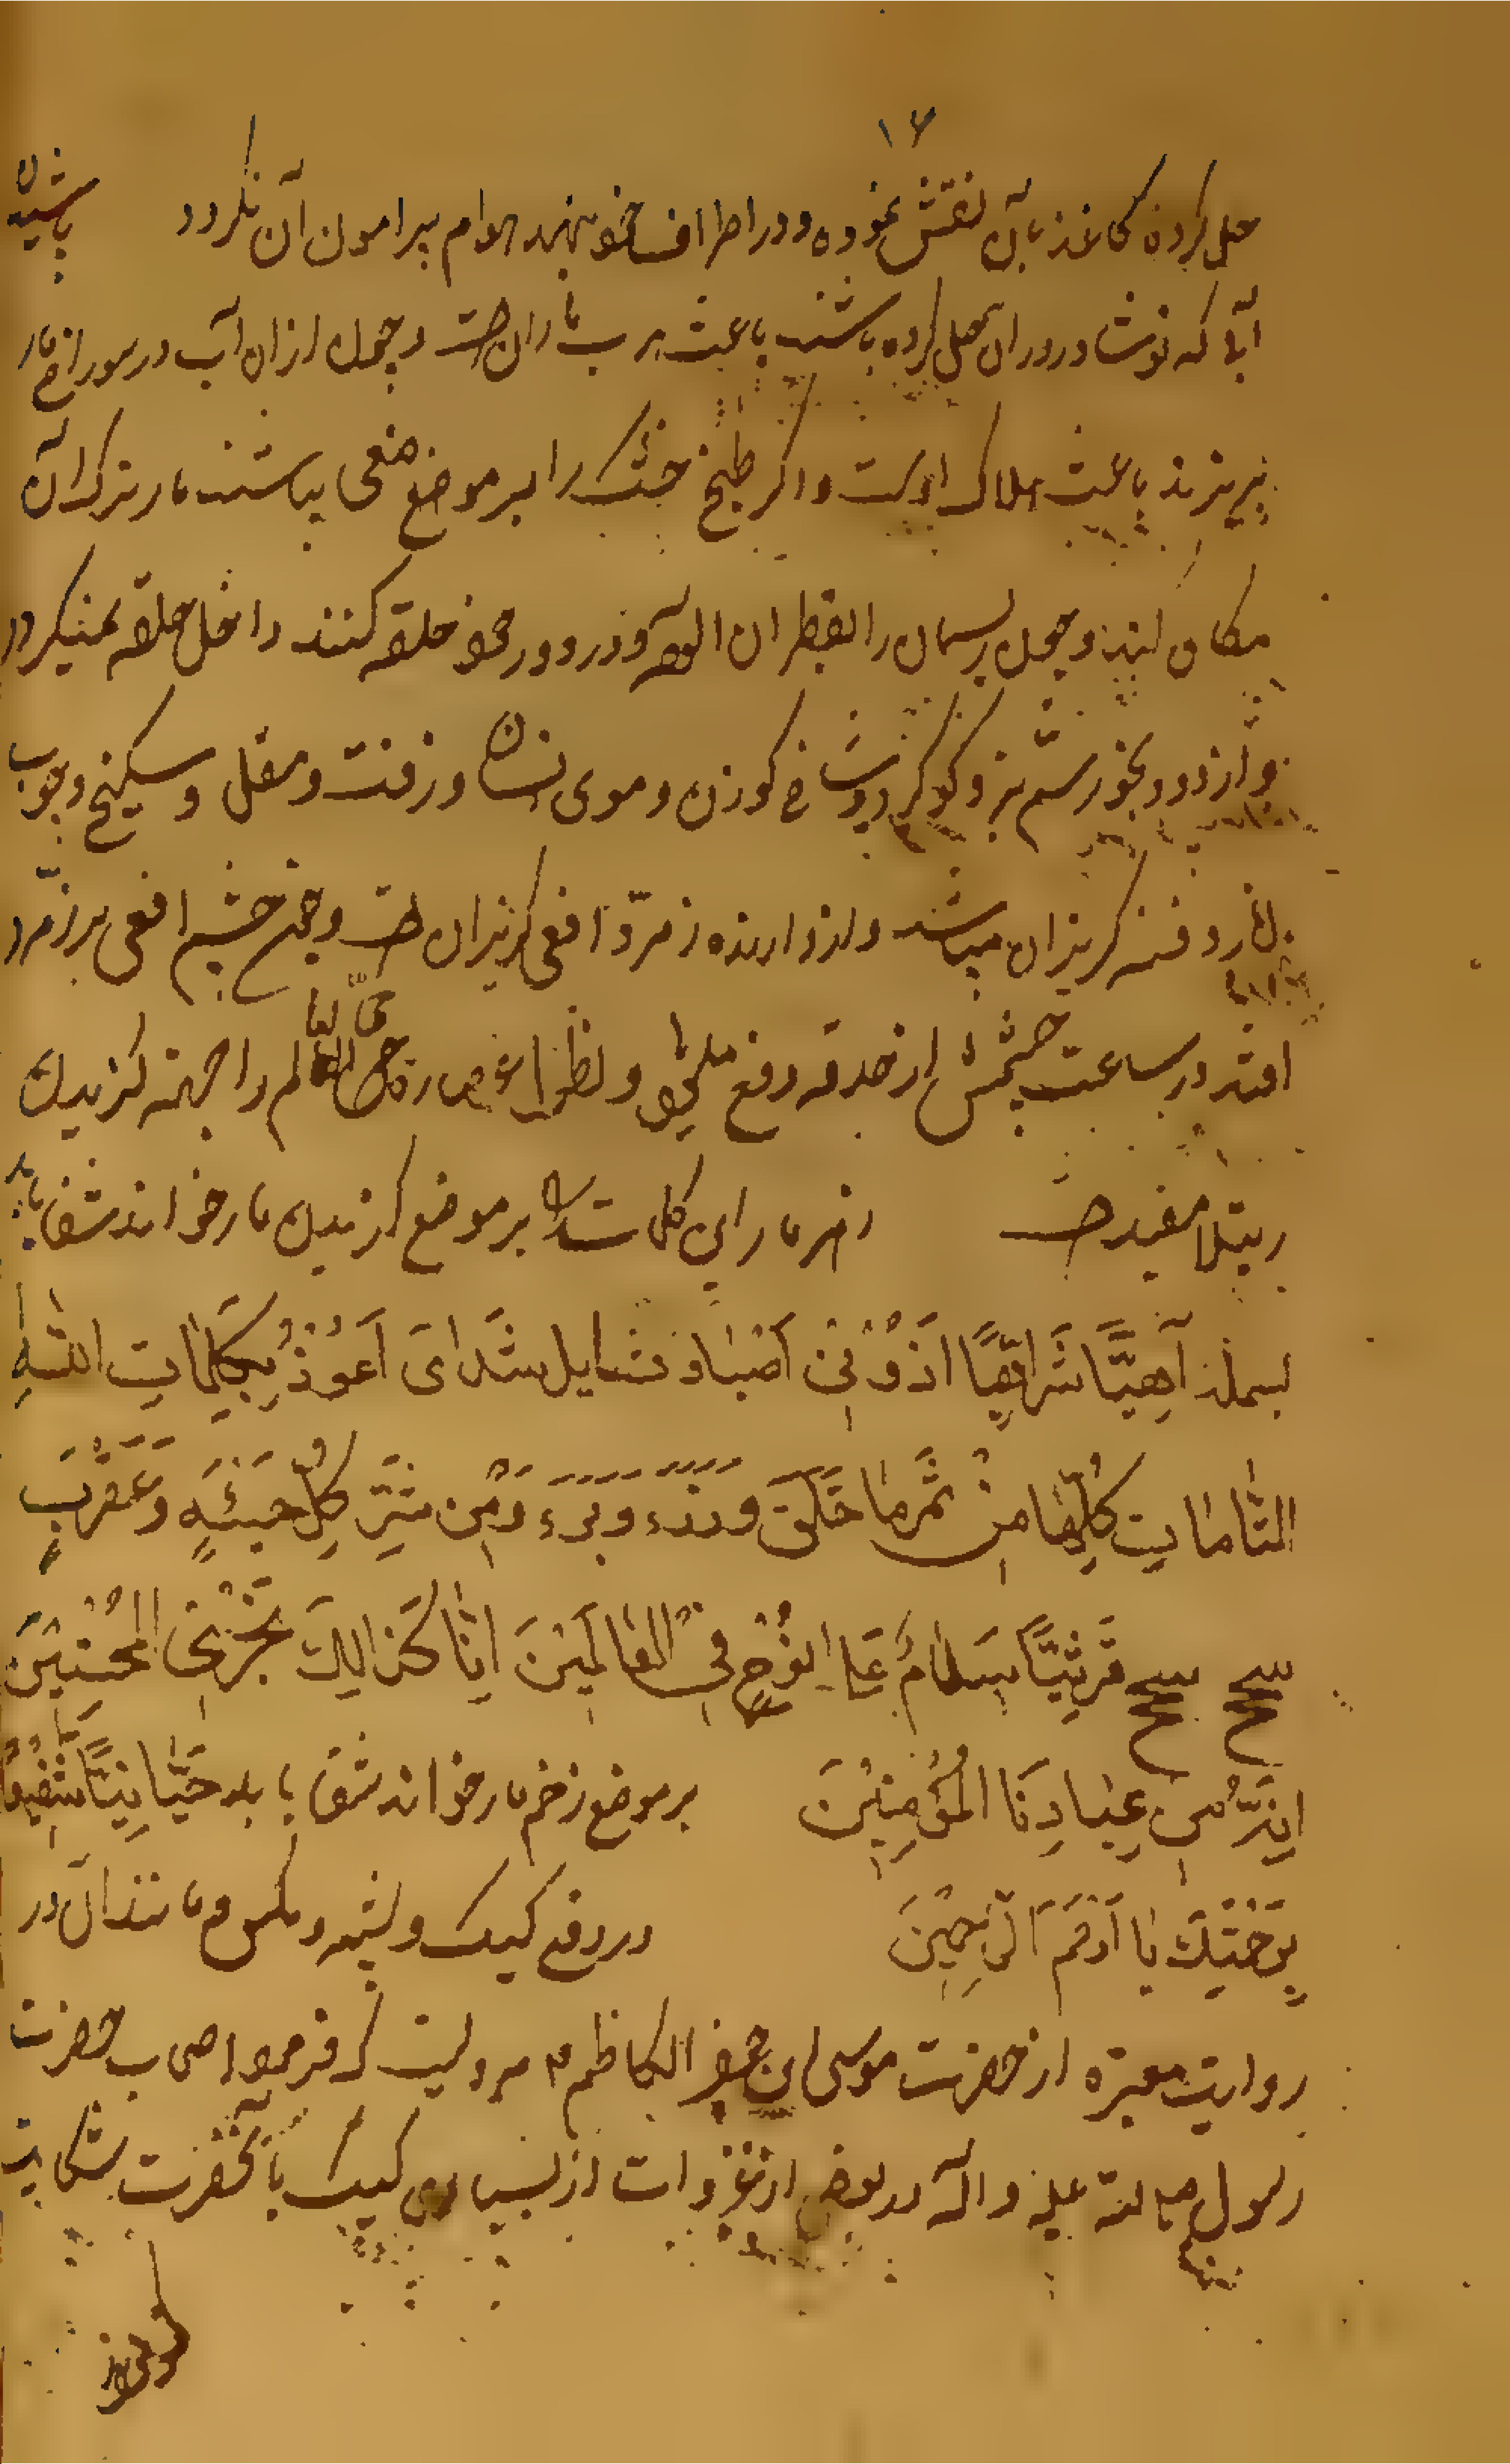 ۱۶
حل کرده کاغذ بآن نقش نموده و در اطراف خود نهند هوام پیرامون آن نگردد پاشیدن
آبی که نوشادر در ان حل کرده باشند باعث هرب ماران است و چون ازان آب در سوراخ مار
بریزند باعث هلاک اوست و اگر طبیخ خشک را بر موضعی بپاشند مار ترک آن
مکان کند و چون ریسمان را بقطران آلوده و در دور خود حلقه کنند داخل حلقه نمیگردد
و از دود بخور سم بز و کوکرد و شاخ کوزن و موی انسان و زفت و مقل و سکبینج و چوب
انار و قنه کریزان میباشد و از دارنده زمرّد افعی کریزان است و چون چشم افعی بر زمرد
افتد در ساعت چشمش از حدقه دفع میشود و عصاره حی العالم را جهة کزیدن
رتیلا مفید است زخم مار این کلمات را بر موضع کزیدن مار خواند شفا یابد
بسمله آهِیًّا شَراهِیًّا اَدُونی اَصَباو ثشایل شدای اَعُوذُ بِکَلِماتِ اللهِ
التّاماتِ کُلِّها مِنْ شَرِّ ما خَلَقَ وَ ذَرَءَ وَ بَرَءَ وَ مِن شَرِّ کُلِّ حَیَّةٍ وَ عَقْرَبٍ
سج سج قَرنِیًّا سَلامٌ عَلی نُوحٍ فِی العالَمینَ اِنّا کَذالِکَ نَجْزِی المُحْسِنینَ
اِنَّهُ مِن عِبادِنَا المُؤمِنینَ بر موضع زخم مار خواند شفا یابد حَیًّا
بِرَحْمَتِکَ یا اَرْحَمَ الرّاحِمینَ در دفع کیک و پشه و مکس و مانند آن در
روایت معتبره از حضرت موسی ابن جعفر الکاظم ع مرویست که فرمود اصحاب حضرت
رسول صلی الله علیه و اله در بعضی از غزوات از بسیاری کیک بآنحضرت شکایت